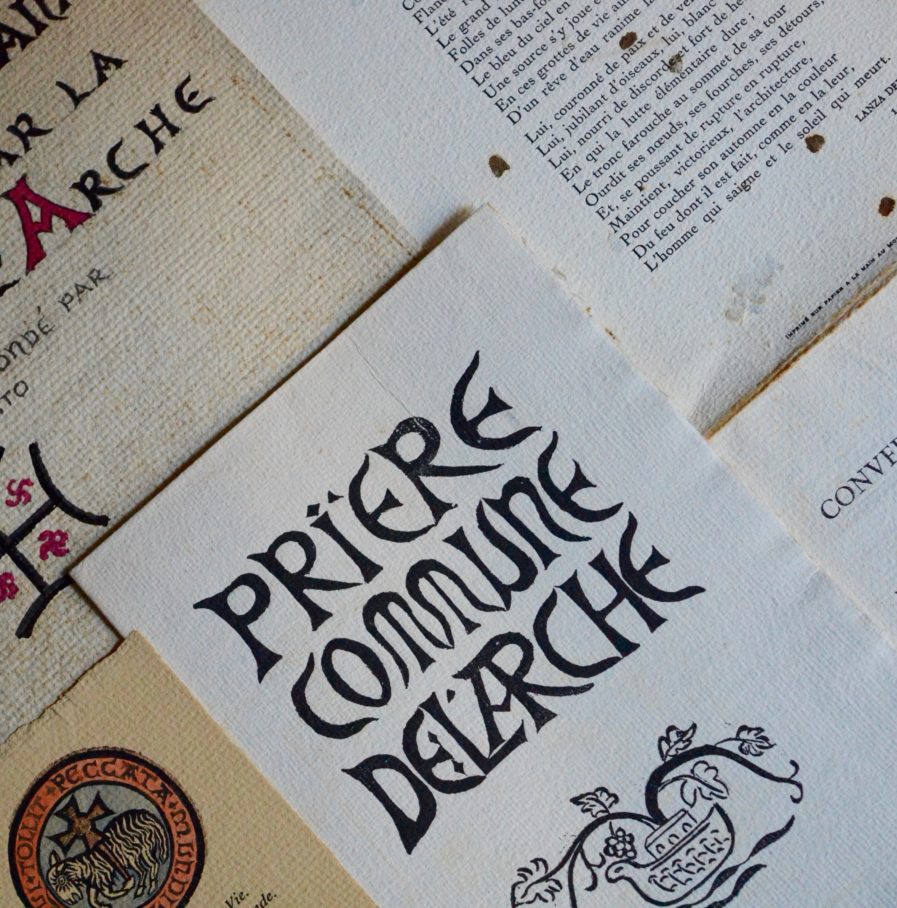 PAR LA
ARCHE
FONDÉ PAR
L'été
Le grand
Folles de lune
Dans ses bas-fo
Le bleu du ciel en
Une source s'y joue e
En ces grottes de vie aux
D'un rêve d'eau ranime le
Lui, couronné de paix et de ve
Lui, jubilant d'oiseaux, lui, blanc
Lui, nourri de discorde et fort de
En qui la lutte élémentaire dure ;
Le tronc farouche au sommet de sa tour
Ourdit ses nœuds, ses fourches, ses détours,
Et, se poussant de rupture en rupture,
Maintient, victorieux, l'architecture,
Pour coucher son automne en la couleur
Du feu dont il est fait, comme en la leur,
L'homme qui saigne et le soleil qui meurt.
LANZA DE
IMPRIMÉ SUR PAPIER A LA MAIN AU MO
CONVE
PRIÈRE
COMMUNE
DE L'ARCHE
TOLLIT PECCATA MUNDI
Vie.